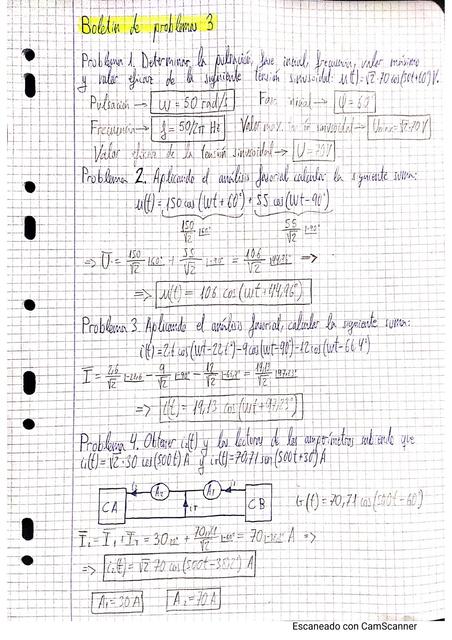 Boletín de problemas 3
Problema 1. Determinar la pulsación, fase inicial, frecuencia, valor máximo
y valor eficaz de la siguiente tensión sinusoidal: u(t)=√2·70 cos(50t+60)V.
Pulsación → ω = 50 rad/s Fase inicial → φ = 60°
Frecuencia → f = 50/2π Hz Valor max. tensión sinusoidal → Umax=√2·70V
Valor eficaz de la tensión sinusoidal → U=70V
Problema 2. Aplicando el análisis fasorial calcular la siguiente suma:
u(t) = 150 cos(ωt+60°) + 55 cos(ωt-90°)
150/√2 |60° 55/√2 |-90°
⇒ U = 150/√2 |60° + 55/√2 |-90° = 106/√2 |44,96° ⇒
⇒ u(t) = 106 cos(ωt+44,96°)
Problema 3. Aplicando el análisis fasorial, calcular la siguiente suma:
- 9 cos(ωt-90°) - 12 cos(ωt-66,4°)
⇒ i(t) = 19,13 cos(ωt+97,23°)
Problema 4. Obtener i₂(t) y las lecturas de los amperímetros sabiendo que
i₁(t)=√2·30 cos(500t) A y iT(t)=70,71 sen(500t+30) A
CA A₂ A₁ CB iT(t) = 70,71 cos(500t-60)
A₁=30A A₂=70A
Escaneado con CamScanner